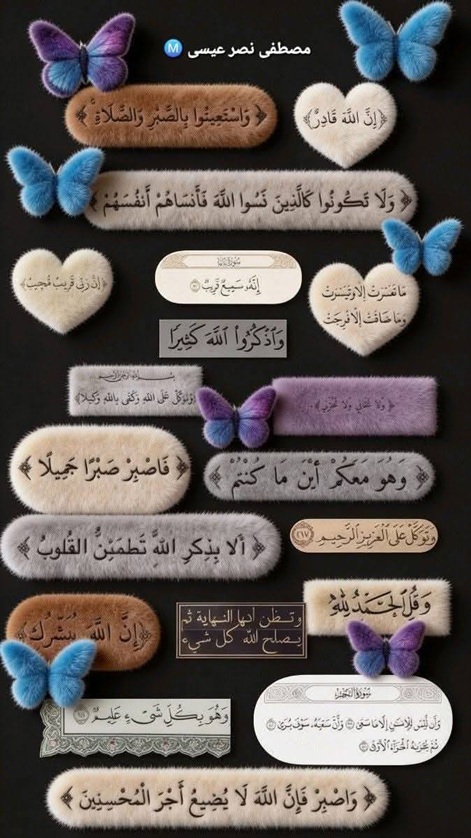 مصطفى نصر عيسى M
﴿ وَاسْتَعِينُوا بِالصَّبْرِ وَالصَّلَاةِ ﴾
﴿إِنَّ اللَّهَ قَادِرٌ﴾
﴿ وَلَا تَكُونُوا كَالَّذِينَ نَسُوا اللَّهَ فَأَنسَاهُمْ أَنفُسَهُمْ ﴾
﴿إِنَّ رَبِّي قَرِيبٌ مُّجِيبٌ﴾
إِنَّهُ سَمِيعٌ قَرِيبٌ
مَا تَعَسَّرَتْ إِلَّا وَتَيَسَّرَتْ
وَمَا ضَاقَتْ إِلَّا فُرِجَتْ
وَاذْكُرُوا اللَّهَ كَثِيرًا
بسم الله الرحمن الرحيم
﴿وَتَوَكَّلْ عَلَى اللَّهِ وَكَفَى بِاللَّهِ وَكِيلًا﴾
﴿ وَلَا تَخَافِي وَلَا تَحْزَنِي ﴾
﴿ فَاصْبِرْ صَبْرًا جَمِيلًا ﴾
﴿ وَهُوَ مَعَكُمْ أَيْنَ مَا كُنتُمْ ﴾
﴿ أَلَا بِذِكْرِ اللَّهِ تَطْمَئِنُّ الْقُلُوبُ ﴾
وَتَوَكَّلْ عَلَى الْعَزِيزِ الرَّحِيمِ ٢١٧
﴿إِنَّ اللَّهَ يُبَشِّرُكِ﴾
وتظن أنها النهاية ثم
يصلح الله كل شيء
وَقُلِ الْحَمْدُ لِلَّهِ
وَهُوَ بِكُلِّ شَيْءٍ عَلِيمٌ
سُورَةُ النَّجْمِ
وَأَن لَّيْسَ لِلْإِنسَانِ إِلَّا مَا سَعَى وَأَنَّ سَعْيَهُ سَوْفَ يُرَى
ثُمَّ يُجْزَاهُ الْجَزَاءَ الْأَوْفَى
﴿ وَاصْبِرْ فَإِنَّ اللَّهَ لَا يُضِيعُ أَجْرَ الْمُحْسِنِينَ ﴾